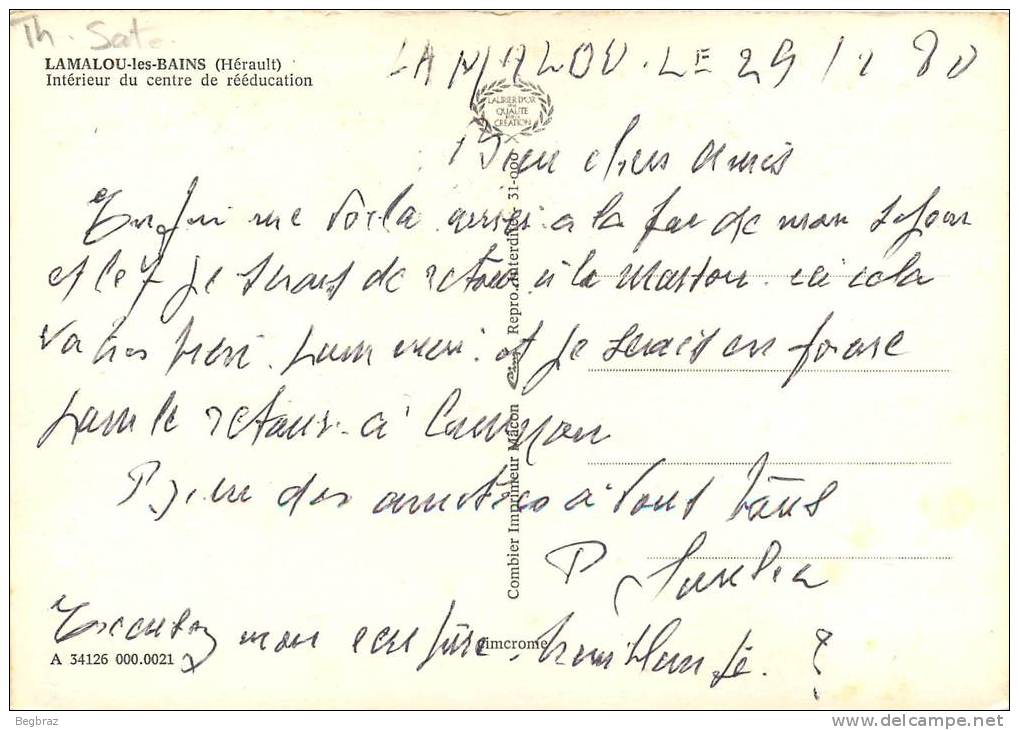 Th. Sat.
LAMALOU-les-BAINS (Hérault)
Intérieur du centre de rééducation
LAMALOU. LE 29 / 1 80
LAURIER D'OR
QUALITE
CRÉATION
Bien chers amis
Enfin me voila arrivé a la fin de mon sejour
et le 7 je serais de retour à la maison. ici cela
va tres bien. pour moi. et je serais en forme
pour le retour à
Bien des amities à tous tous
P.
Excusez mon ecriture tremblante.
Combier Imprimeur Mâcon Cim Repro. Interdite - 31-000
cimcrome
A 34126 000.0021
Begbraz
www.delcampe.net